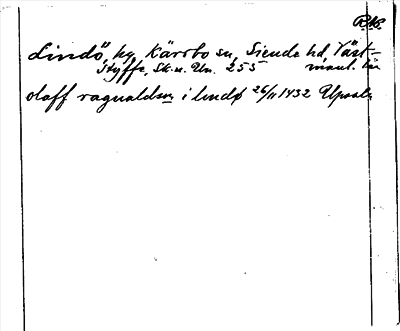 R.K.
Lindö, hg, Kärrbo sn, Siende hd, Väst-
Styffe, Sk. u. Un. 255 manl. län
olaff ragualdson i lindø 26/11 1432 Upsala